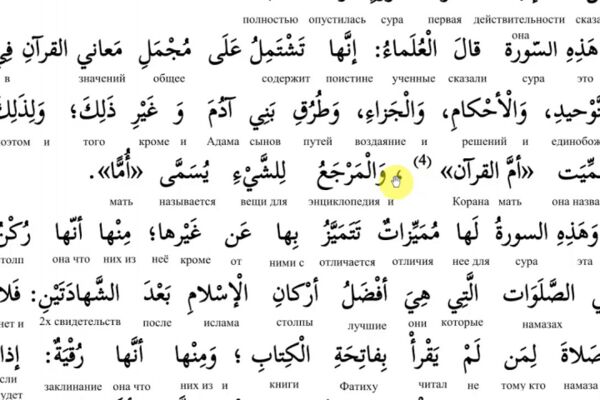 полностью опустилась сура первая действительности сказа
هَذِهِ السّورة قالَ الْعُلَماءُ: إنَّها تَشْتَمِلُ عَلَى مُجْمَلِ مَعاني القرآنِ فِي
она
в значений общее содержит поистине ученные сказали сура это
تَّوْحيدِ، وَالْأحْكامِ، وَالْجَزاءِ، وَطُرُقِ بَنِي آدُمَ وَ غَيْرِ ذَلِكَ؛ وَلِذَلِكَ
оэтом и того кроме и Адама сынов путей воздаяние и решений и единобож
مِّيَت «أمَّ القرآن» (4) ، وَالْمَرْجَعُ لِلشَّيْءِ يُسَمَّى «أُمًّا».
мать называется вещи для энциклопедия и Корана мать она назва
وَهَذِهِ السورةُ لَها مُمَيِّزاتٌ تَتَمَيَّزُ بِها عَن غَيْرِها؛ مِنْها أنّها رُكْنٌ
толп она что них из неё кроме от ними с отличается отличия нее для сура эта
ي الصَّلَوَات الَّتِي هِيَ أفْضَلُ أرْكانِ الْإسْلامِ بَعْدَ الشَّهادَتَيْنِ: فَلا
нет и 2х свидетельств после ислама столпы лучшие они которые намазах
صَلاةَ لِمَن لَمْ يَقْرأْ بِفاتِحَةِ الْكِتابِ ؛ وَمِنْها أنَّها رُقْيَةٌ: إذا
сли заклинание она что них из и книги Фатиху читал не тому кто намаза
удет